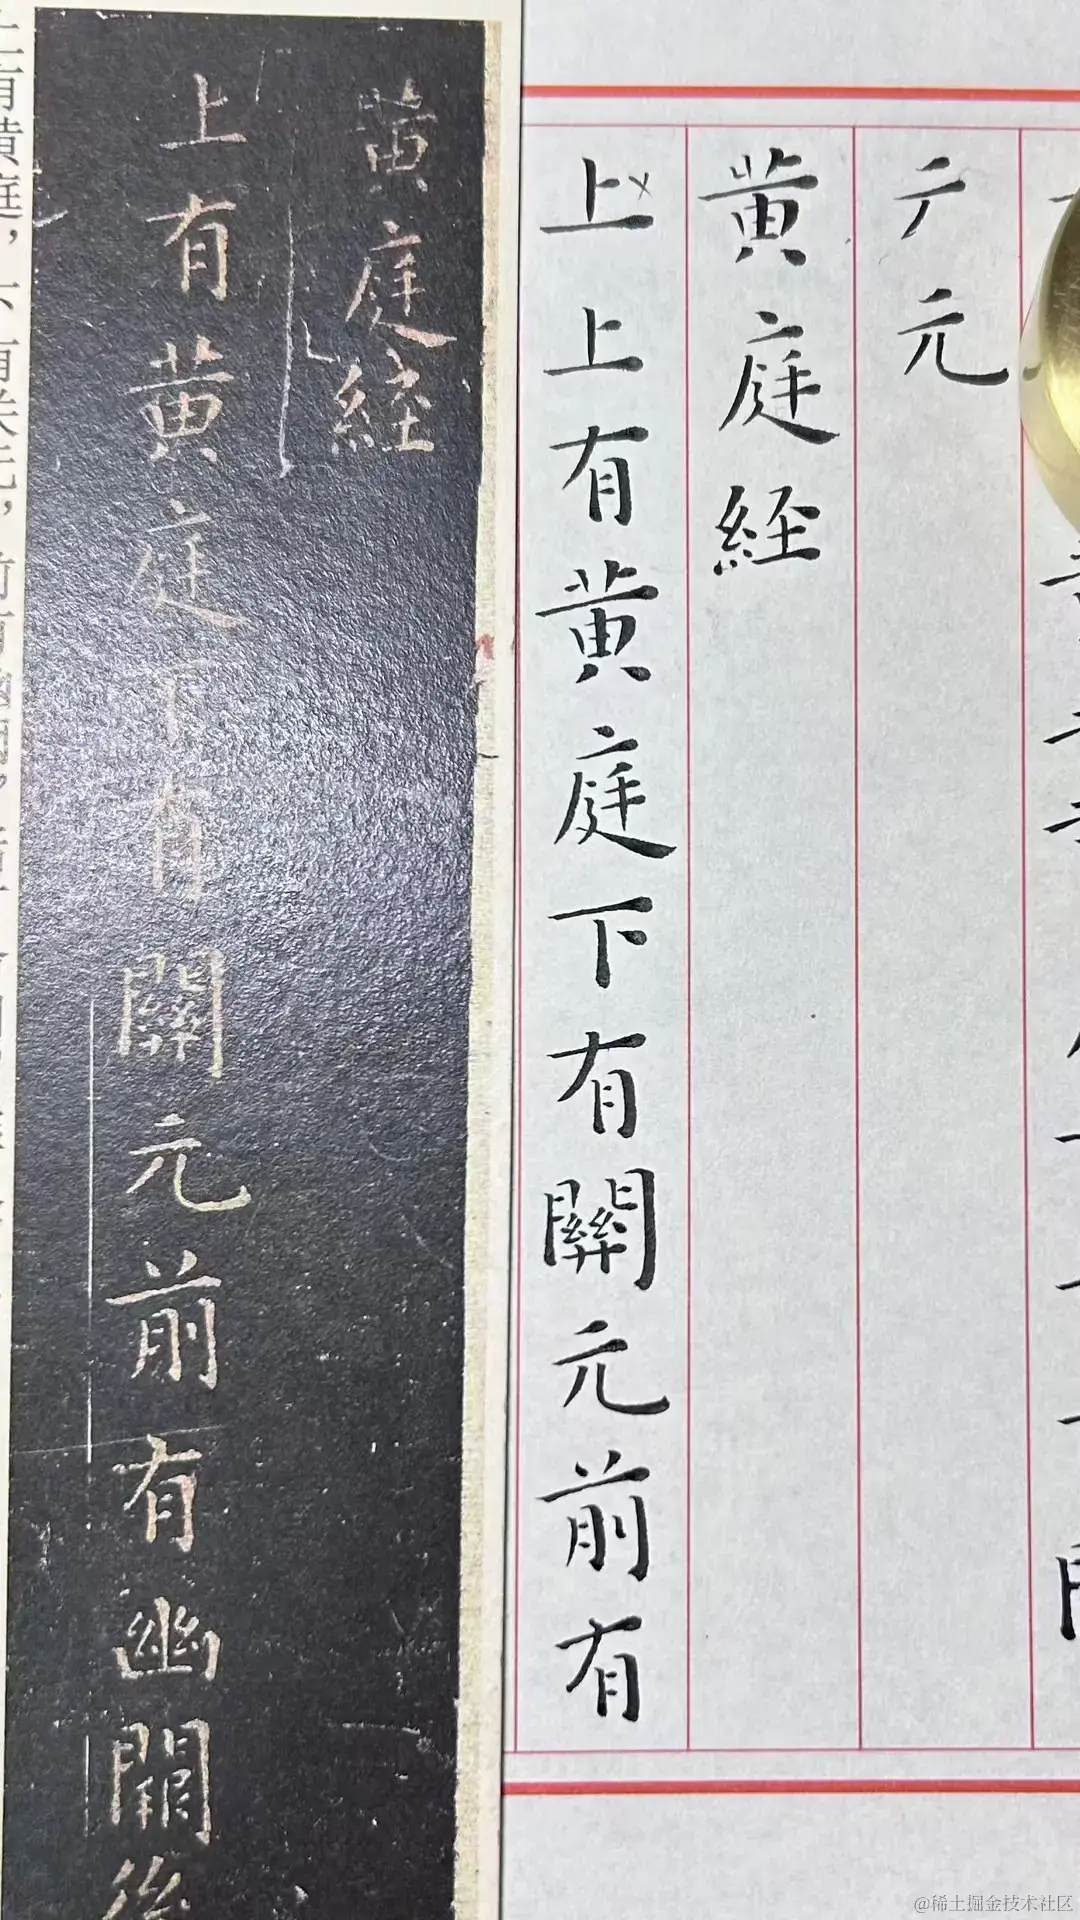 黄庭經
上有黄庭下有關元前有幽闕後
有黄庭，下有关元，前有
元
黄庭經
上上有黄庭下有關元前有
@稀土掘金技术社区